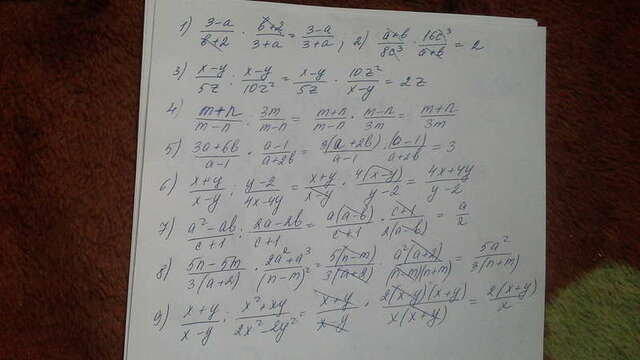 1) (3-a)/(b+2) · (b+2)/(3+a) = (3-a)/(3+a); 2) (a+b)/(8c³) · (16c³)/(a+b) = 2
3) (x-y)/(5z) : (x-y)/(10z²) = (x-y)/(5z) · (10z²)/(x-y) = 2z
4) (m+n)/(m-n) : (3m)/(m-n) = (m+n)/(m-n) · (m-n)/(3m) = (m+n)/(3m)
5) (3a+6b)/(a-1) · (a-1)/(a+2b) = (3(a+2b))/(a-1) · (a-1)/(a+2b) = 3
6) (x+y)/(x-y) : (y-2)/(4x-4y) = (x+y)/(x-y) · (4(x-y))/(y-2) = (4x+4y)/(y-2)
7) (a²-ab)/(c+1) : (2a-2b)/(c+1) = (a(a-b))/(c+1) · (c+1)/(2(a-b)) = a/2
8) (5n-5m)/(3(a+2)) · (2a²+a³)/((n-m)²) = (5(n-m))/(3(a+2)) · (a²(a+2))/((n-m)(n+m)) = (5a²)/(3(n+m))
9) (x+y)/(x-y) : (x²+xy)/(2x²-2y²) = (x+y)/(x-y) · (2(x-y)(x+y))/(x(x+y)) = (2(x+y))/x